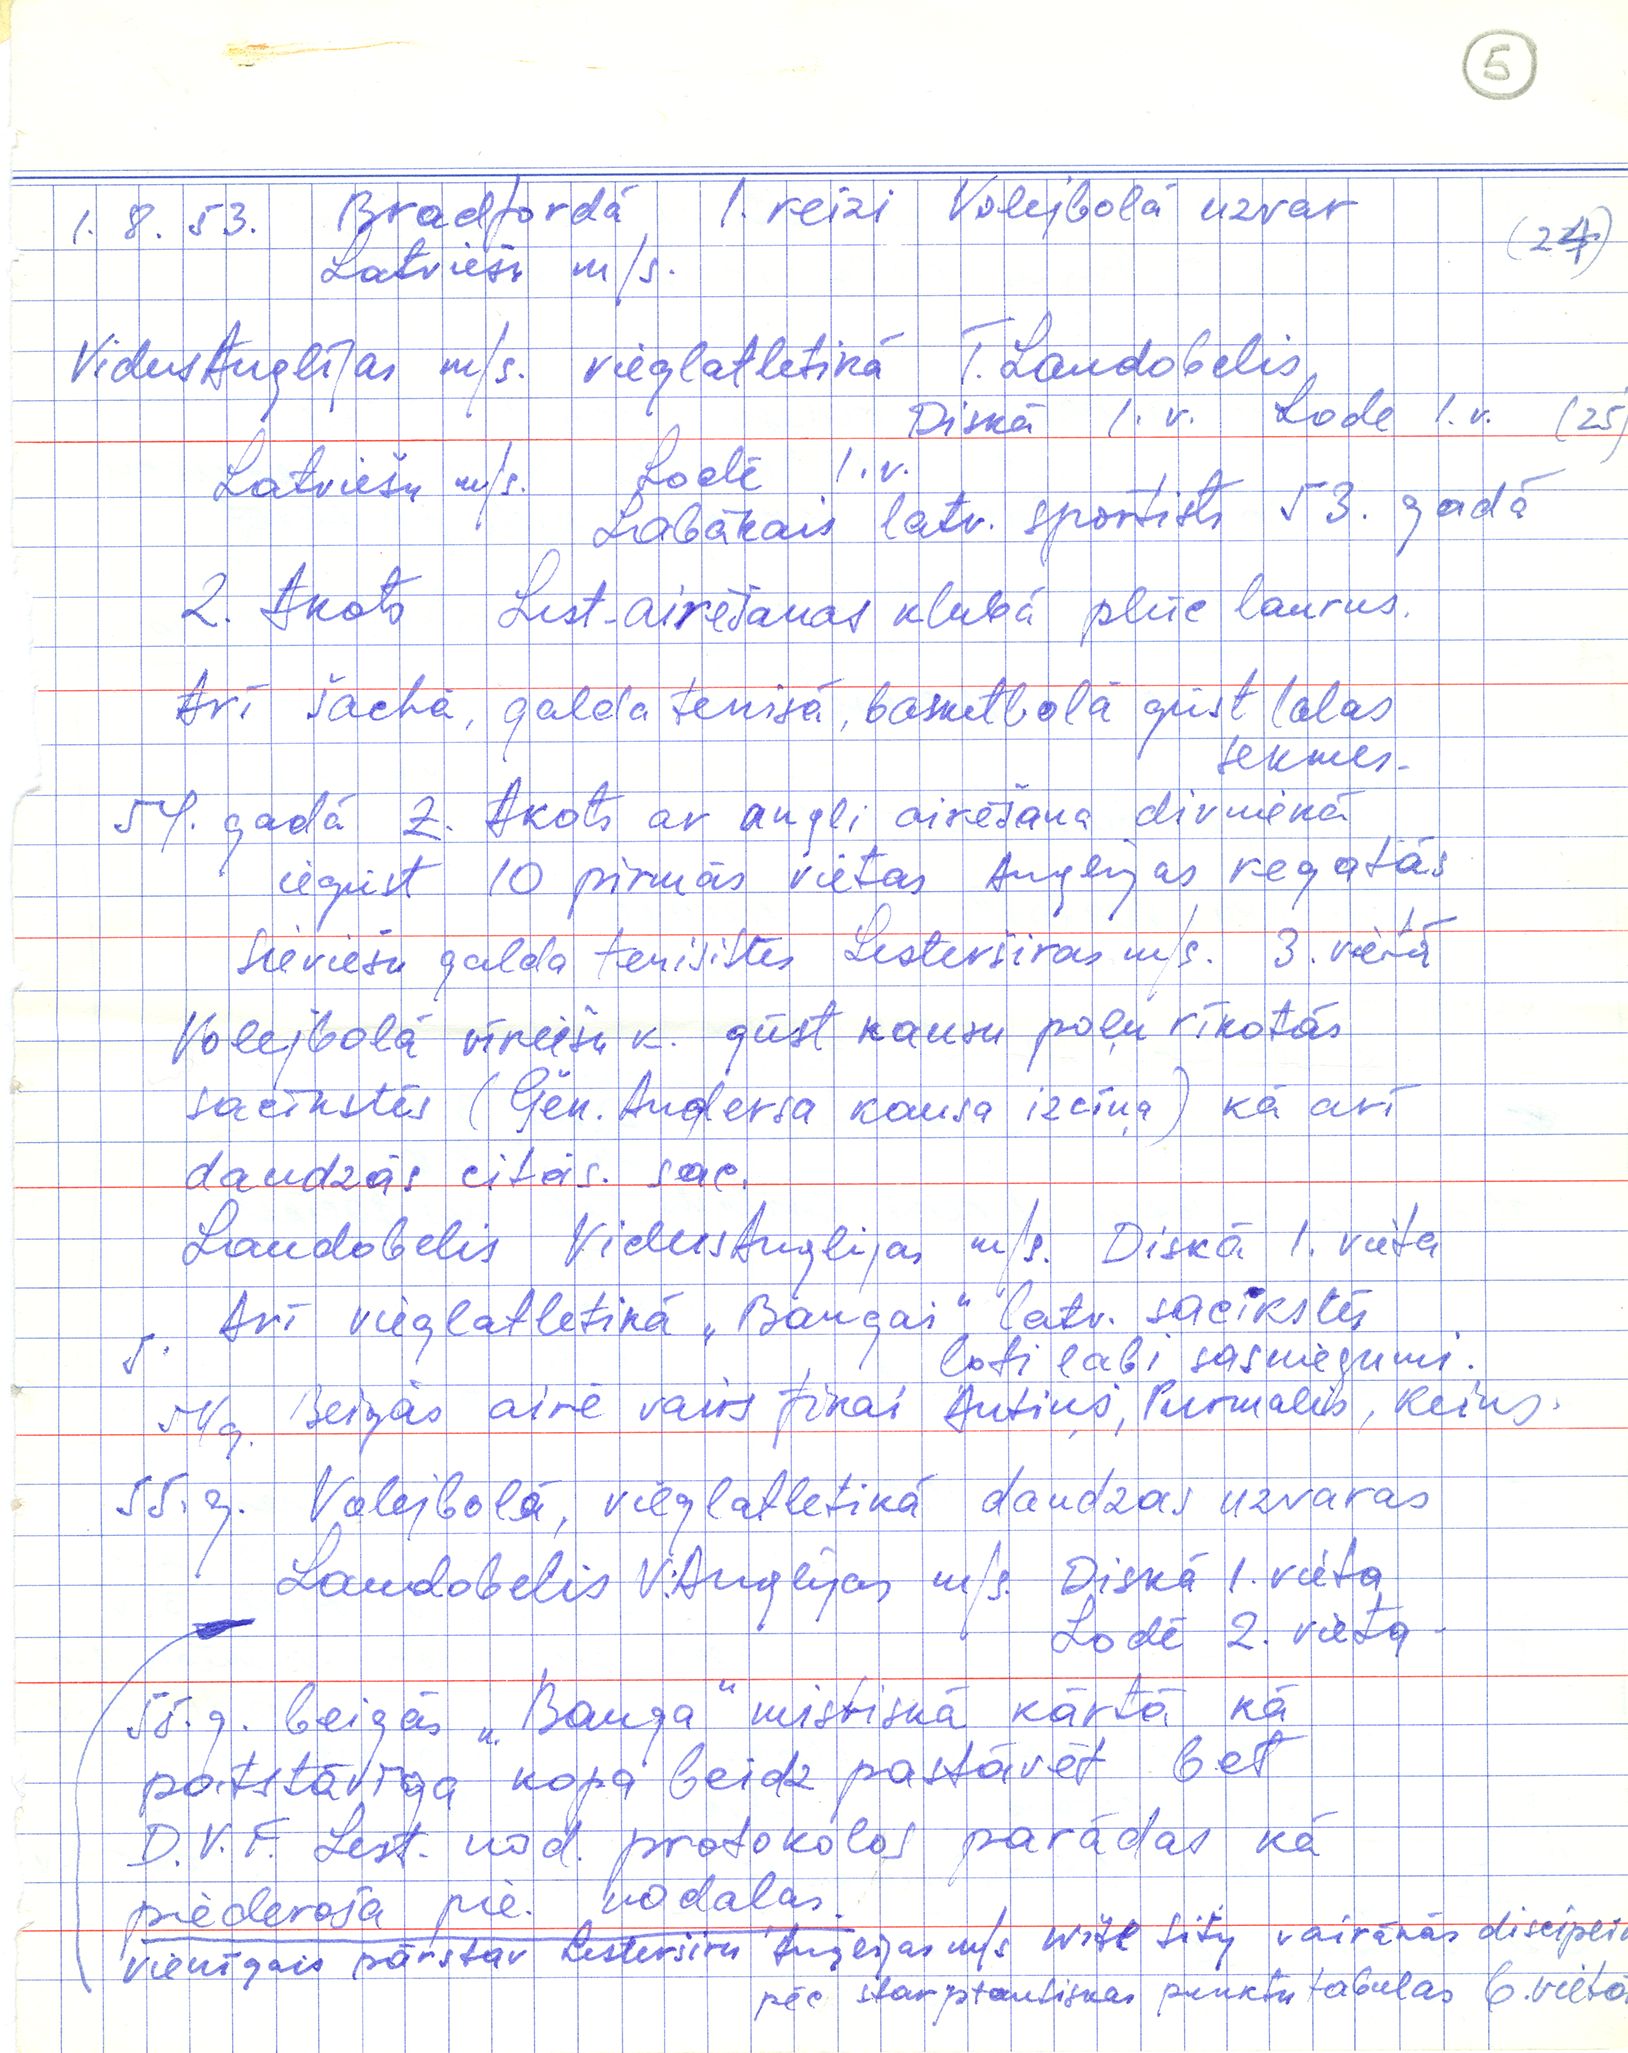 5
1. 8. 53. Bradfordā 1. reizi Volejbolā uzvar
(24)
Latviešu m/s.
VidusAnglijas m/s. vieglatletikā T. Laudobelis
Diskā 1. v. Lode 1. v. (25)
Latviešu m/s. Lodē 1. v.
Labākais latv. sportists 53. gadā
Z. Akots Lest. airēšanas klubā plūc laurus.
Arī šachā, galda tenisā, basketbolā gūst labas
sekmes.
54. gadā Z. Akots ar angli airēšana divniekā
iegūst 10 pirmās vietas Anglijas regatās
Sieviešu galda tenisistes Lesterširas m/s. 3. vietā
Volejbolā vīriešu k. gūst kausu poļu rīkotās
sacīkstēs (Ģen. Andersa kausa izcīņa) kā arī
daudzās citās. sac.
Laudobelis VidusAnglijas m/s. Diskā 1. vieta
Arī vieglatletikā „Bangai" latv. sacīkstēs
5.
loti labi sasniegumi.
54g. Beigās airē vairs tikai Antiņš, Purmalis, Keiņs.
55. g. Volejbolā, vieglatletikā daudzas uzvaras
Laudobelis V. Anglijas m/s. Diskā 1. vieta
Lodē 2. vieta
55. g. beigās „Banga" mistiskā kārtā kā
patstāvīga kopa beidz pastāvēt bet
D.V.F. Lest. nod. protokolos parādas kā
piederoša pie. nodalas.
vienīgais pārstāv Lesterširu Anglijas m/s White Sity vairākās disciplin
pēc starptautiskas punktu tabulas 6. vietā